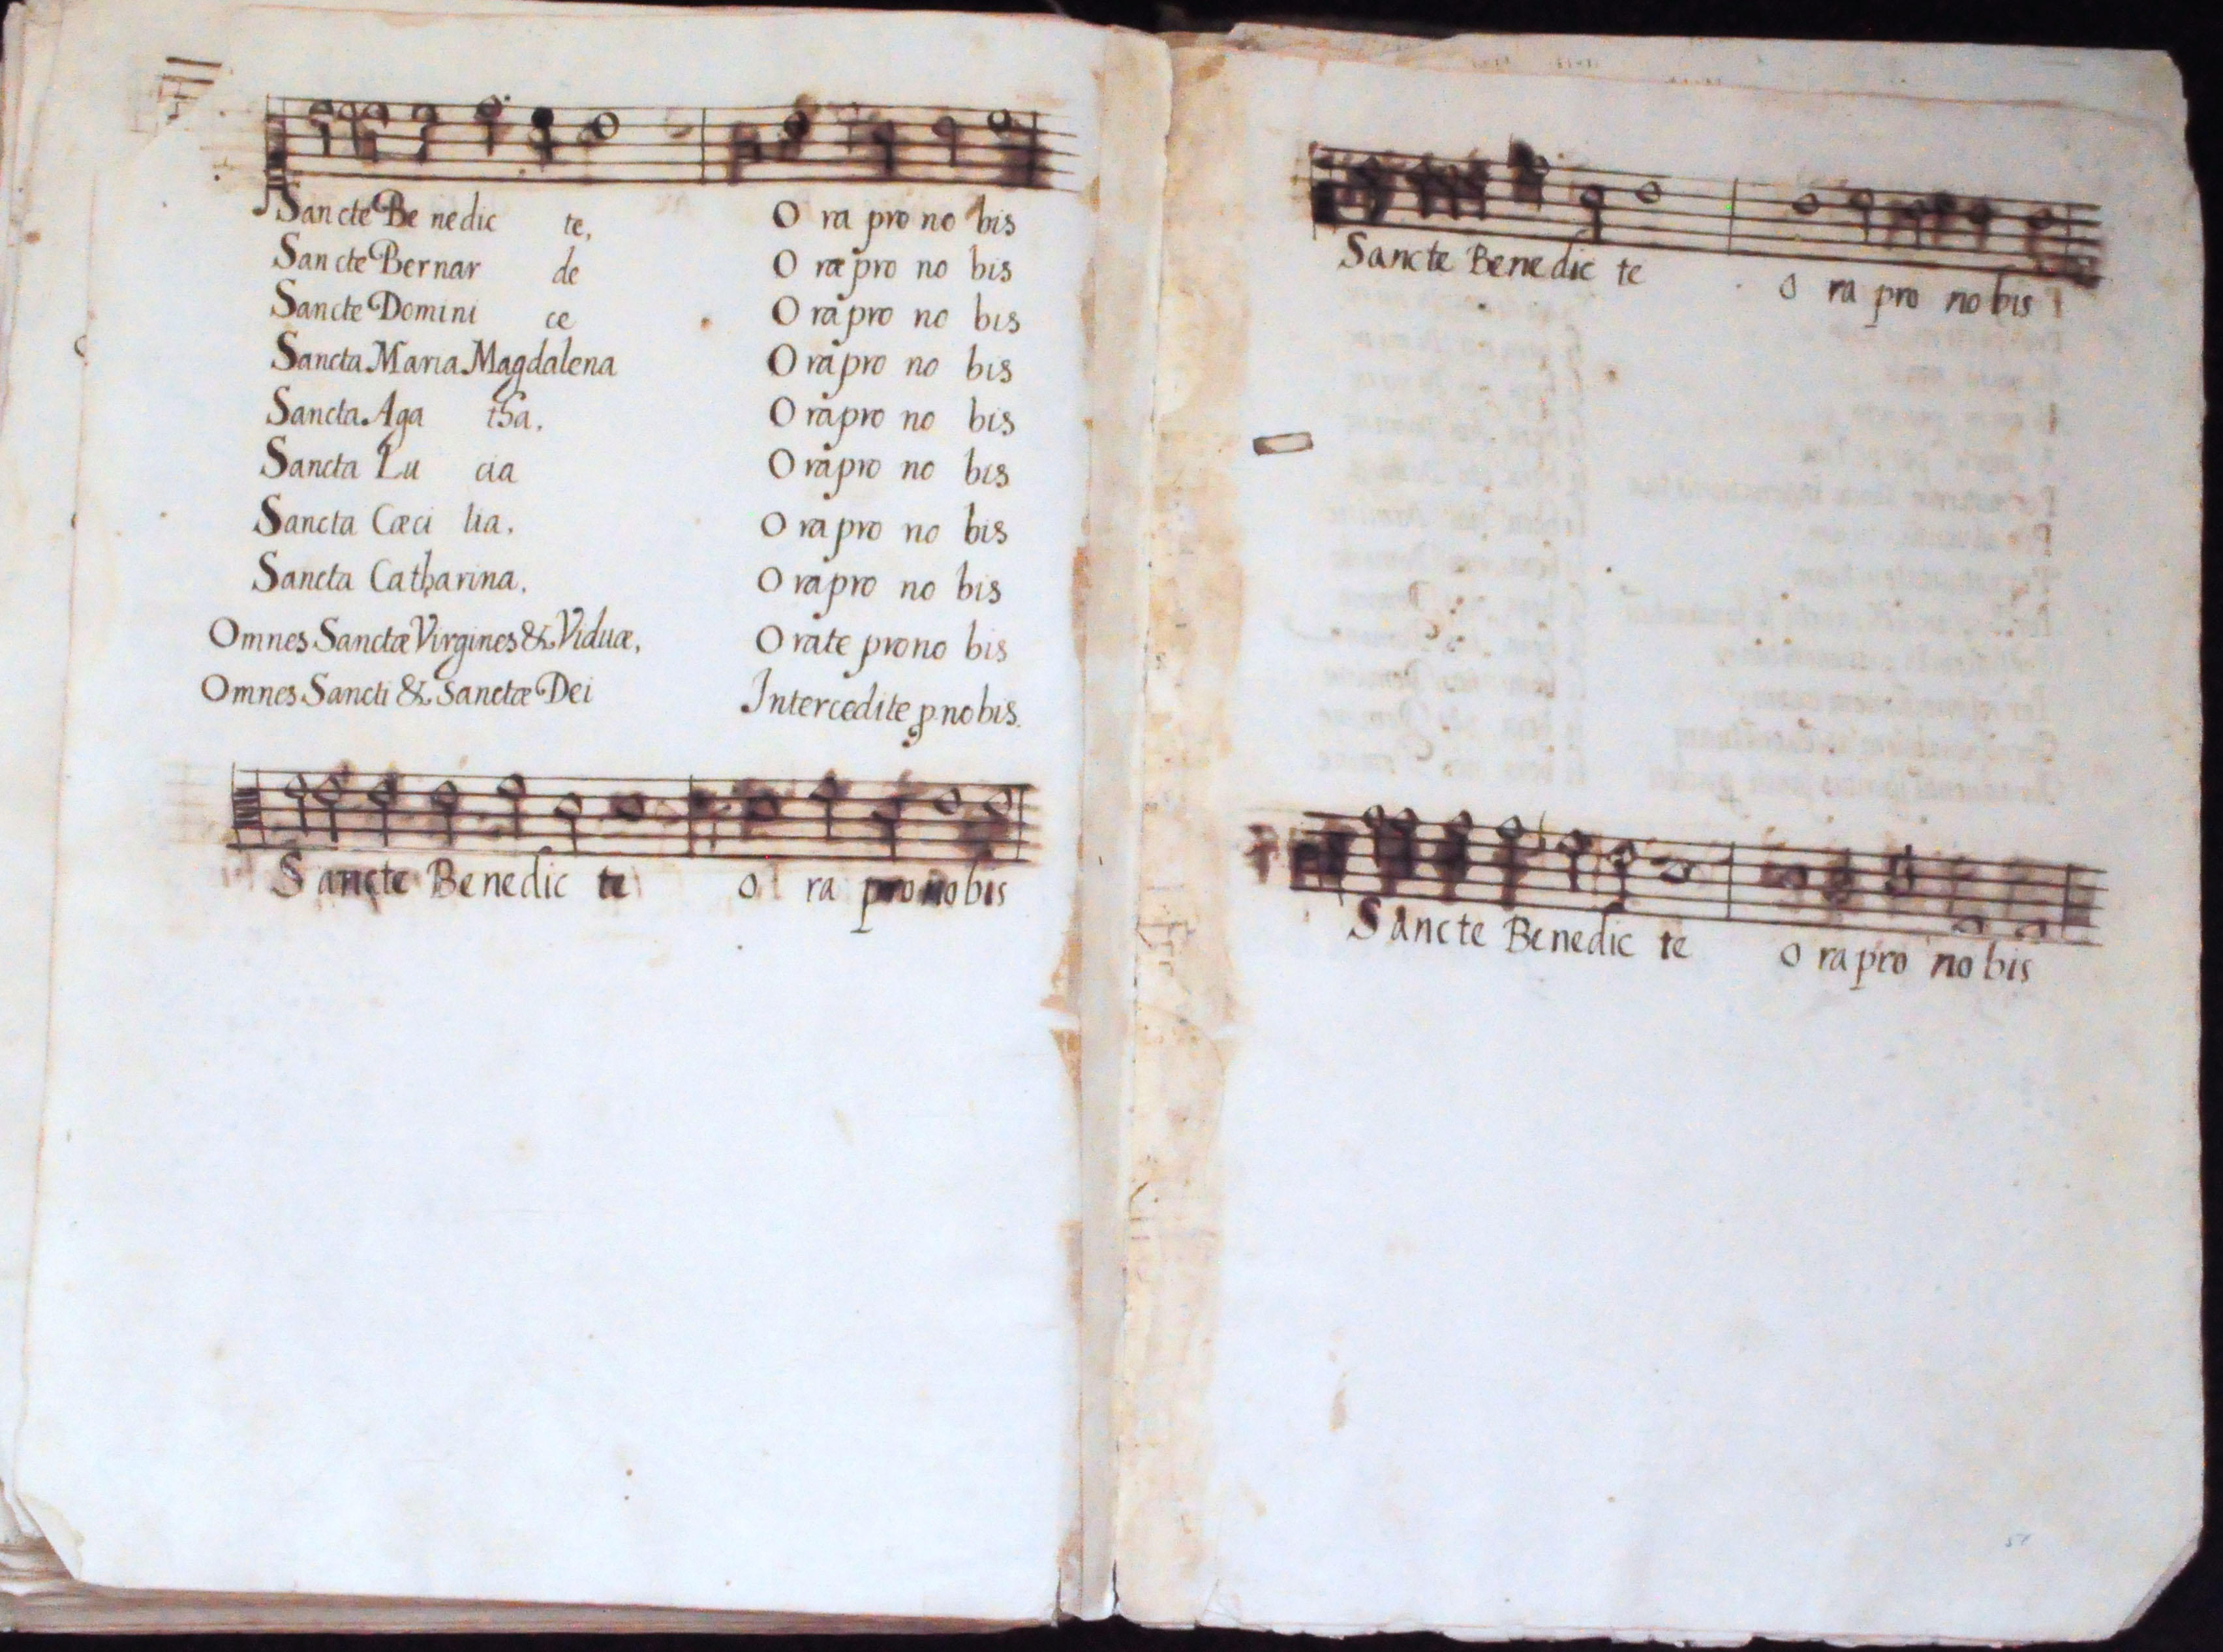 Sancte Be nedic te, O ra pro no bis
Sancte Bernar de O ra pro no bis
Sancte Domini ce O ra pro no bis
Sancta Maria Magdalena O ra pro no bis
Sancta Aga tha. O ra pro no bis
Sancta Lu cia O ra pro no bis
Sancta Cæci lia. O ra pro no bis
Sancta Catharina. O ra pro no bis
Omnes Sanctæ Virgines & Viduæ, O rate pro no bis
Omnes Sancti & Sanctæ Dei Intercedite p nobis.
Sancte Be nedic te o ra pro no bis
Sancte Be ne dic te o ra pro no bis
Sancte Benedic te o ra pro no bis
51